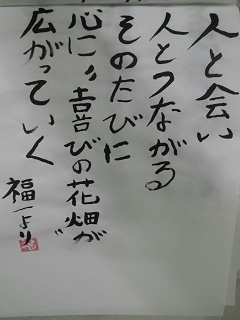 人と会い
人とつながる
そのたびに
心に〃喜びの花畑が〃
広がっていく
福一より